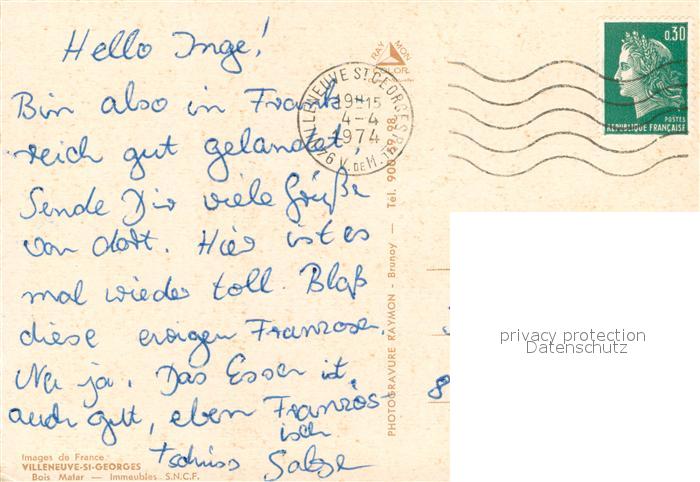 Hello Inge!
Bin also in Frank-
reich gut gelandet,
Sende Dir viele Grüße
von dort. Hier ist es
mal wieder toll. Bloß
diese ewigen Franzosen.
Na ja. Das Essen ist
auch gut, eben Französ-
isch
tschüss
RAYMON
COLOR
VILLENEUVE ST GEORGES
19H15
4-4
1974
V. DE M.
0,30
POSTES
REPUBLIQUE FRANÇAISE
PHOTOGRAVURE RAYMON - Brunoy — Tél.
8
privacy protection
Datenschutz
Images de France
VILLENEUVE-St-GEORGES
Bois Matar — Immeubles S.N.C.F.